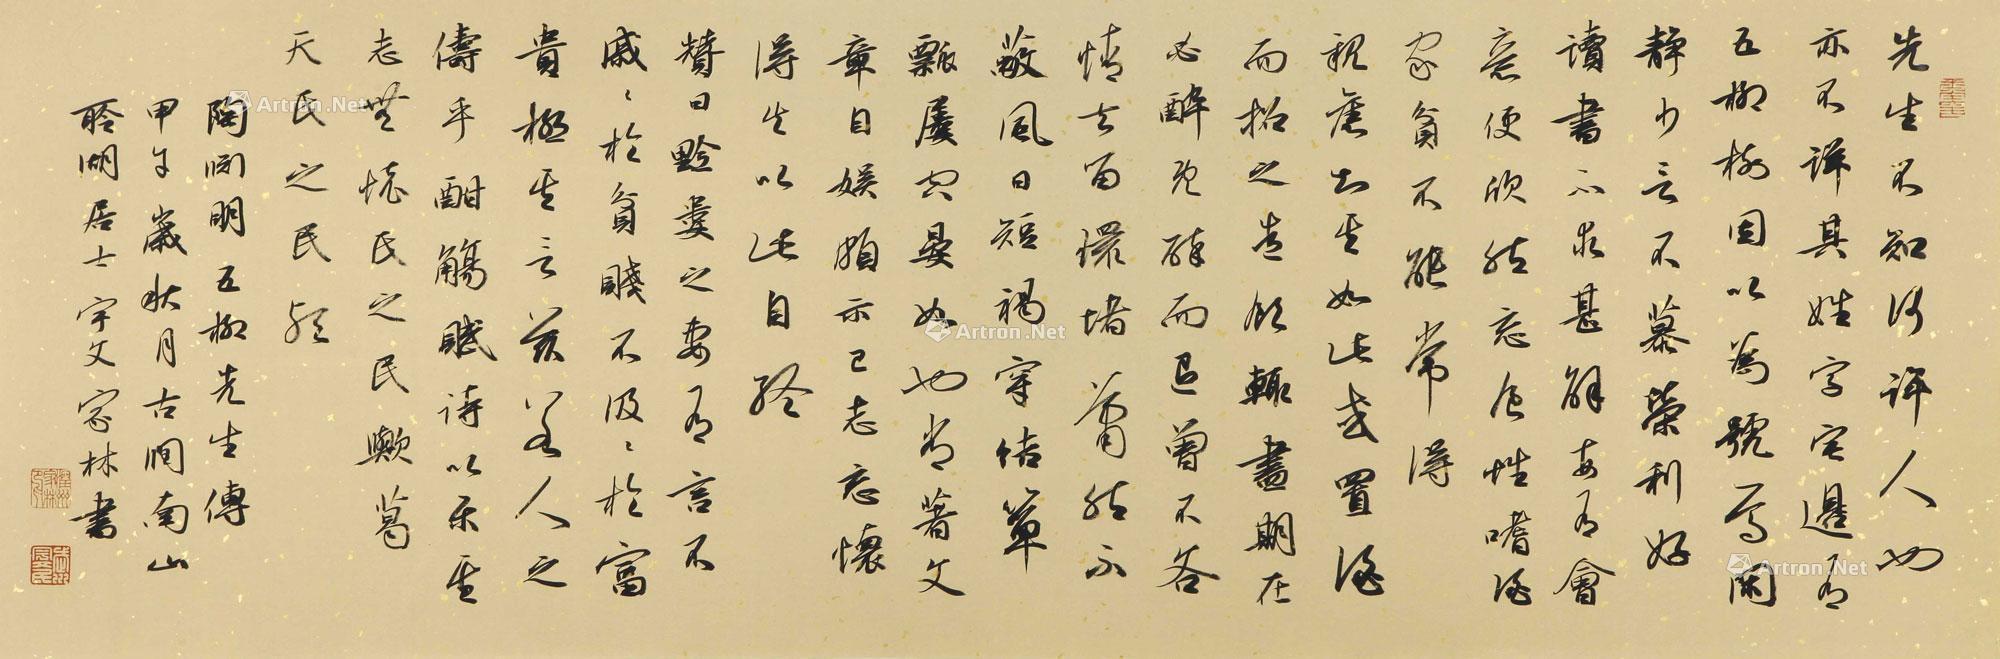 先生不知何許人也
亦不詳其姓字宅邊有
五柳樹因以為號焉閑
靜少言不慕榮利好
讀書不求甚解每有會
意便欣然忘食性嗜酒
家貧不能常得
親舊知其如此或置酒
而招之造飲輒盡期在
必醉既醉而退曾不吝
情去留環堵蕭然不
蔽風日短褐穿結簞
瓢屢空晏如也常著文
章自娛頗示己志忘懷
得失以此自終
贊曰黔婁之妻有言不
戚戚於貧賤不汲汲於富
貴極其言茲若人之
儔乎酣觴賦詩以樂其
志無懷氏之民歟葛
天氏之民歟
陶淵明五柳先生傳
甲午歲秋月古澗南山
聆湖居士宇文家林書
Artron.Net
Artron.Net
Artron.Net
Artron.Net
Artron.Net